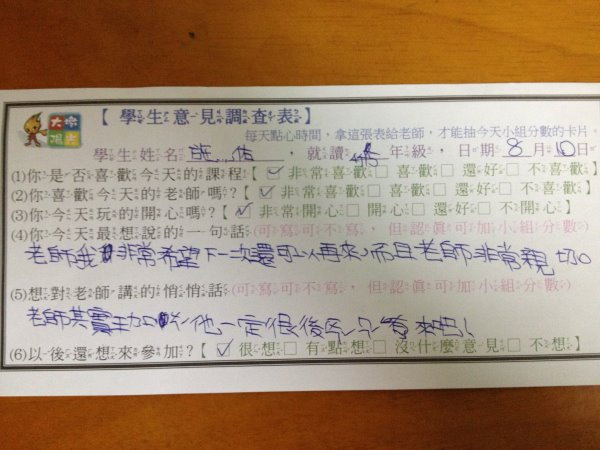 【學生意見調查表】
每天點心時間，拿這張表給老師，才能抽今天小組分數的卡片。
學生姓名，就讀年級，日期8月10日
(1)你是否喜歡今天的課程【✓非常喜歡□喜歡□還好□不喜歡】
(2)你喜歡今天的老師嗎?【✓非常喜歡□喜歡□還好□不喜歡】
(3)你今天玩的開心嗎?【✓非常開心□開心□還好□不開心】
(4)你今天最想說的一句話(可寫可不寫，但認真可加小組分數)
老師我非常希望下一次還可以再來，而且老師非常親切。
(5)想對老師講的悄悄話(可寫可不寫，但認真可加小組分數)
老師其實
(6)以後還想來參加?【✓很想□有點想□沒什麼意見□不想】